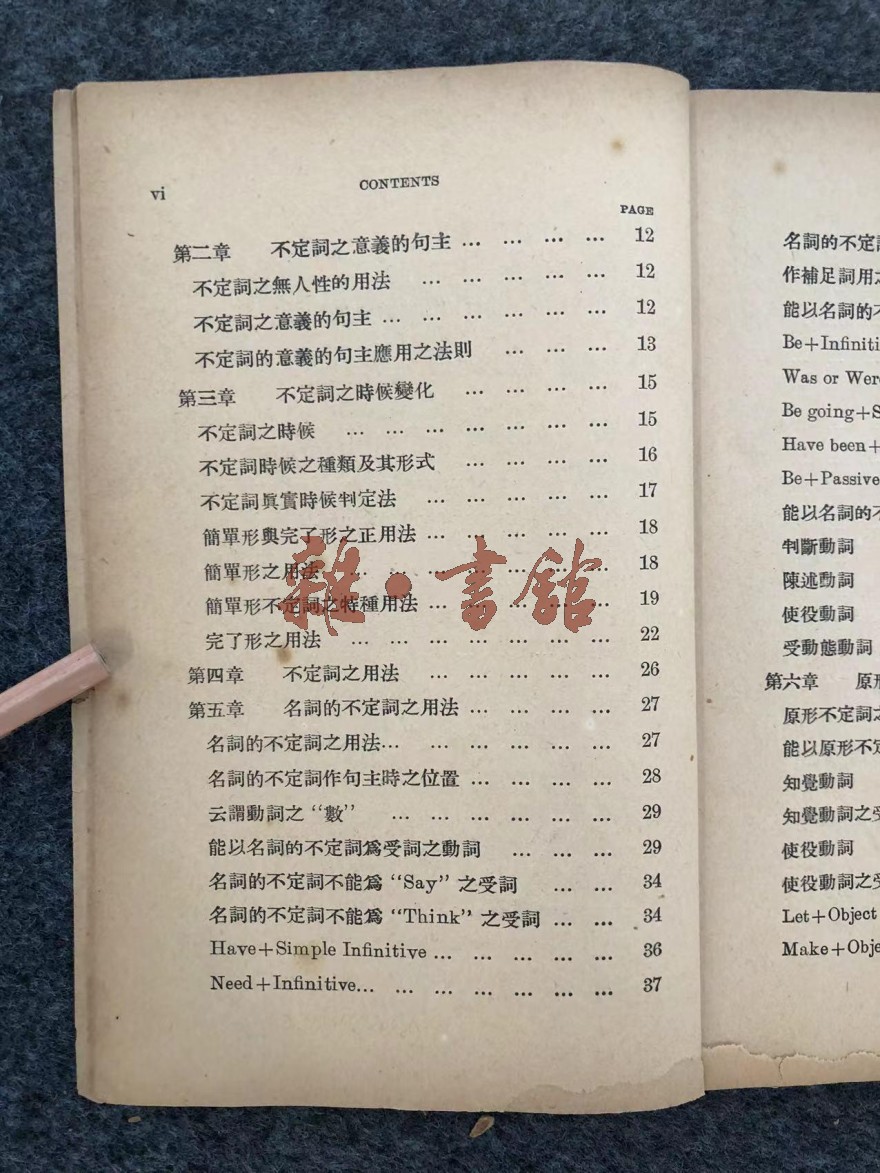 vi CONTENTS
PAGE
第二章 不定詞之意義的句主 ... ... ... ... 12
不定詞之無人性的用法 ... ... ... ... ... 12
不定詞之意義的句主 ... ... ... ... ... ... 12
不定詞的意義的句主應用之法則 ... ... ... 13
第三章 不定詞之時候變化 ... ... ... ... 15
不定詞之時候 ... ... ... ... ... ... ... 15
不定詞時候之種類及其形式 ... ... ... ... 16
不定詞眞實時候判定法 ... ... ... ... ... 17
簡單形與完了形之正用法 ... ... ... ... ... 18
簡單形之用法 ... ... ... ... ... ... ... 18
簡單形不定詞之特種用法 ... ... ... ... ... 19
完了形之用法 ... ... ... ... ... ... 22
第四章 不定詞之用法 ... ... ... ... ... 26
第五章 名詞的不定詞之用法 ... ... ... ... 27
名詞的不定詞之用法... ... ... ... ... ... 27
名詞的不定詞作句主時之位置 ... ... ... ... 28
云謂動詞之 “數” ... ... ... ... ... ... 29
能以名詞的不定詞爲受詞之動詞 ... ... ... 29
名詞的不定詞不能爲 “Say” 之受詞 ... ... 34
名詞的不定詞不能爲 “Think” 之受詞 ... ... 34
Have+Simple Infinitive ... ... ... ... ... 36
Need+Infinitive... ... ... ... ... ... ... 37
雜·書館
名詞的不定
作補足詞用
能以名詞的
Be+Infiniti
Was or Wer
Be going+S
Have been+
Be+Passive
能以名詞的
判斷動詞
陳述動詞
使役動詞
受動態動詞
第六章 原
原形不定詞
能以原形不
知覺動詞
知覺動詞之
使役動詞
使役動詞之
Let+Object
Make+Obje